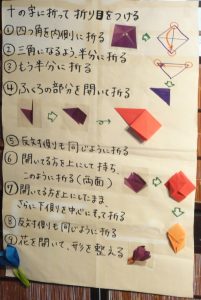 十の字に折って 折り目をつける
① 四つ角を内側に折る
② 三角になるよう半分に折る
③ もう半分に折る
④ ふくろの部分を開いて折る
⑤ 反対側も同じように折る
⑥ 開いてる方を上にして持ち
このように折る(両面)
⑦ 開いてる方を上にしたまま
さらに下側を中心にそって折る
⑧ 反対側も同じように折る
⑨ 花を開いて、形を整える